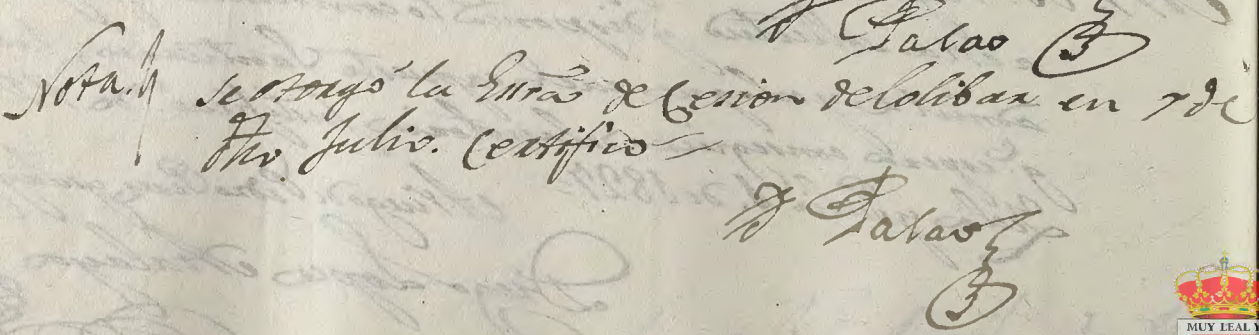 Palao
Nota. Se otorgó la Escra de Cesion del olibar en 7 de
dho Julio. Certifico
Palao
MUY LEAL